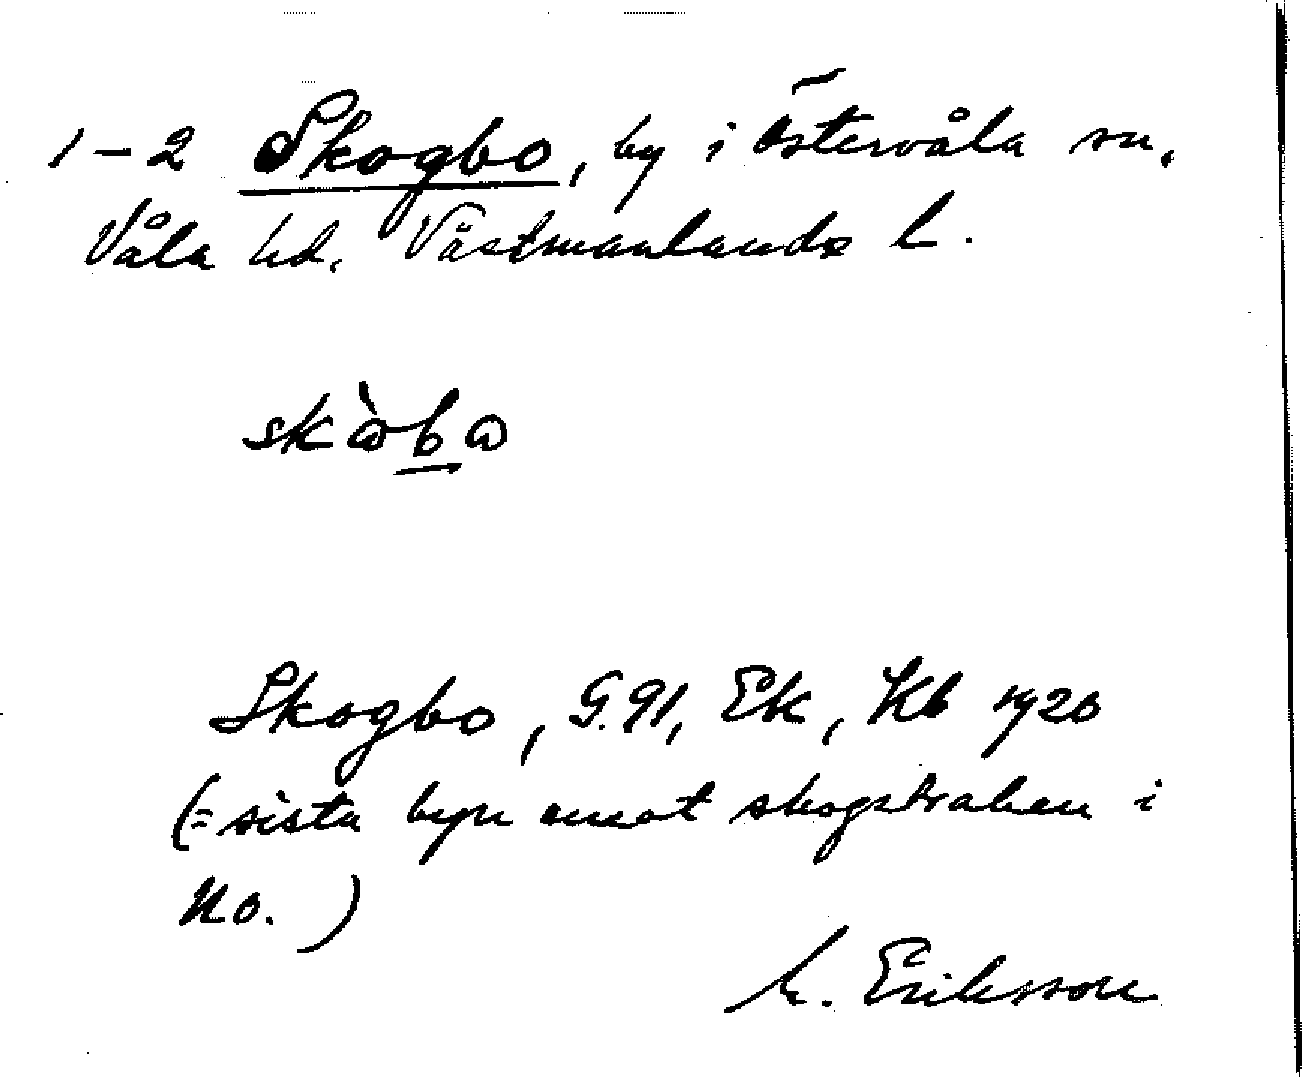 1-2 Skogbo, by i Östervåla sn,
Våla hd. Västmanlands L.
Skogbo, G.91, Ek, Kb 1920
(= sista byn emot skogstraken i
No.)
M. Eriksson